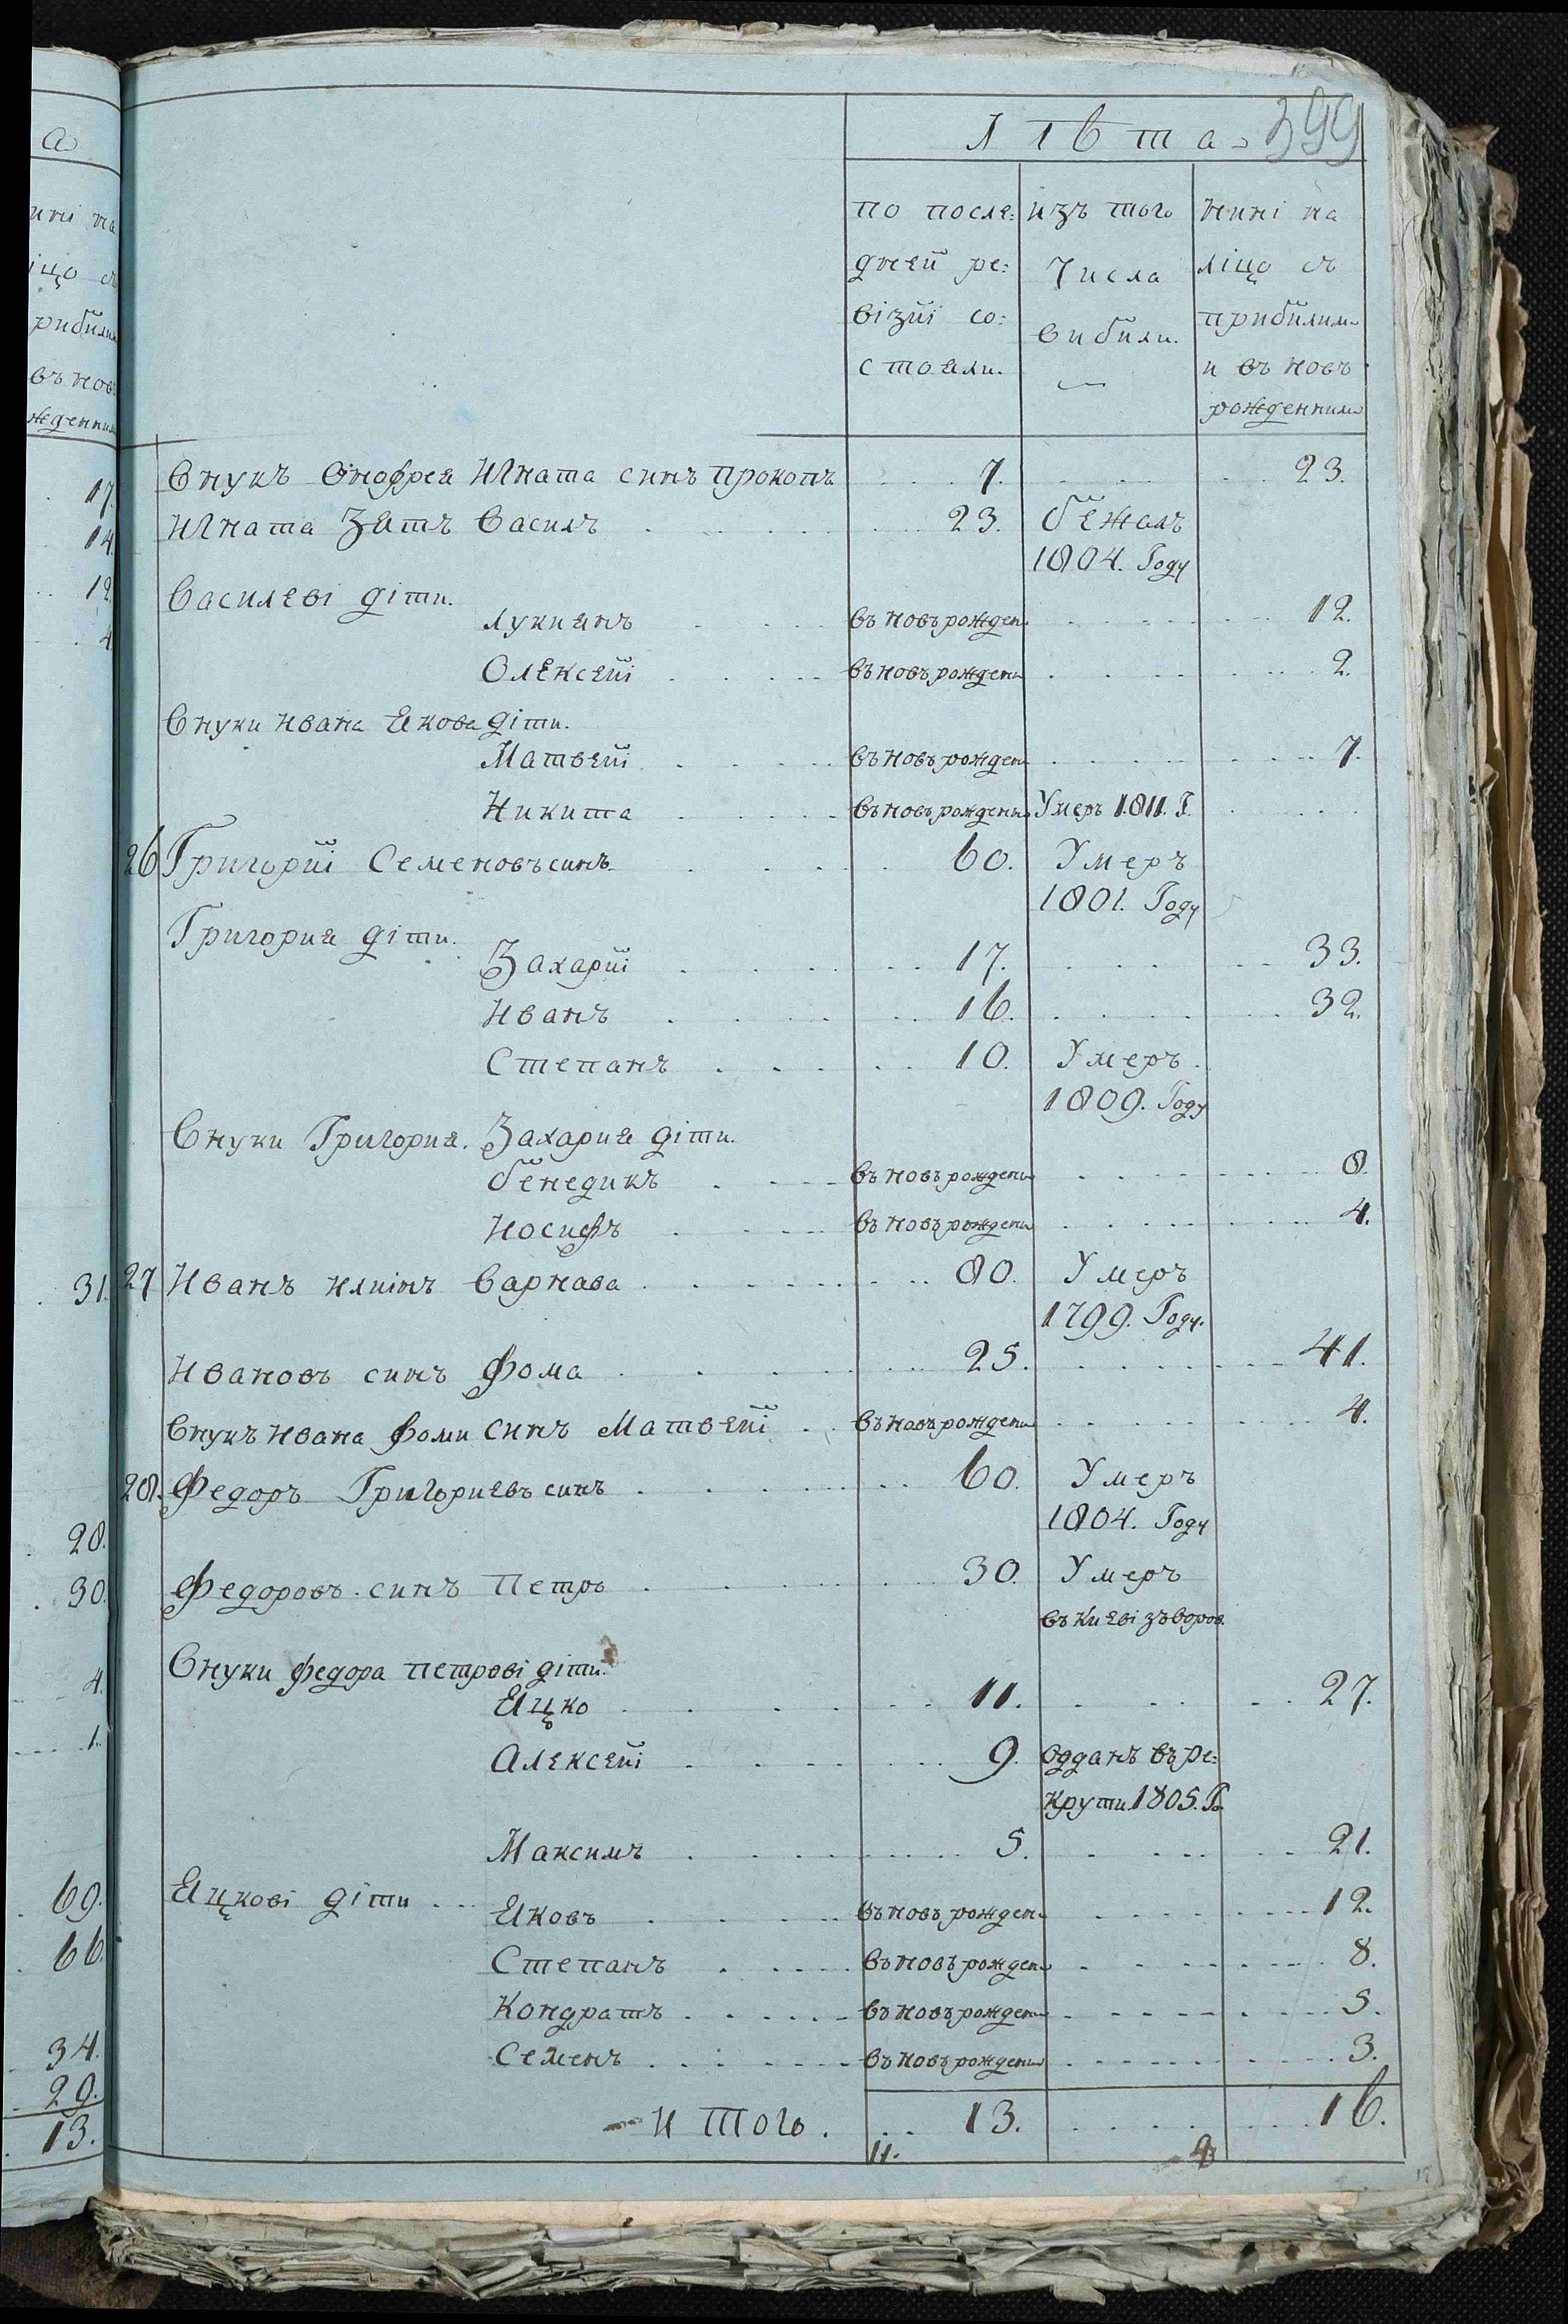 а
ині на
іцо съ
рибили
въ нов
жденним
17.
14.
12.
4.
31.
28.
30.
4.
1.
69.
66.
34.
29.
13.
Лѣта 399
по после:
дней ре:
візиї со:
стояли.
изъ того
Числа
вибили.
нині на
ліцо съ
прибилим
и въ новъ
рожденним
Внукъ Онофрея Игната синъ Прокопъ 7. 23.
Игната Зять Василъ 23. бежалъ
1804. Году
Василеві діти.
Лукиянъ въ новъ рожден 12.
Олексей въ новъ рожден 2.
Внуки Ивана Якова діти.
Матвей въ новъ рожден 7.
Никита въ новъ рожден Умеръ 1811. Г.
26 Григорий Семеновъ синъ 60. Умеръ
1801. Году
Григория діти.
Захарий 17. 33.
Иванъ 16. 32.
Степанъ 10. Умеръ
1809. Году
Внуки Григория. Захария діти.
бенедикъ въ новъ рожден 8.
Иосифъ въ новъ рожден 4.
27 Иванъ Илиинъ Варнава 80. Умеръ
1799. Году.
Ивановъ синъ Фома 25. 41.
Внукъ Ивана Фоми синъ Матвей въ новъ рожден 4.
28. Федоръ Григориевъ синъ 60. Умеръ
1804. Году
Федоровъ синъ Петръ 30. Умеръ
въ Києві
Внуки Федора Петрові діти.
Яцко 11. 27.
Алексей 9. Одданъ въ ре:
крути. 1805. Г.
Максимъ 5. 21.
Яцкові діти Яковъ въ новъ рожден 12.
Степанъ въ новъ рожден 8.
Кондратъ въ новъ рожден 5.
Семенъ въ новъ рожден 3.
И того. 13. 16.
11.